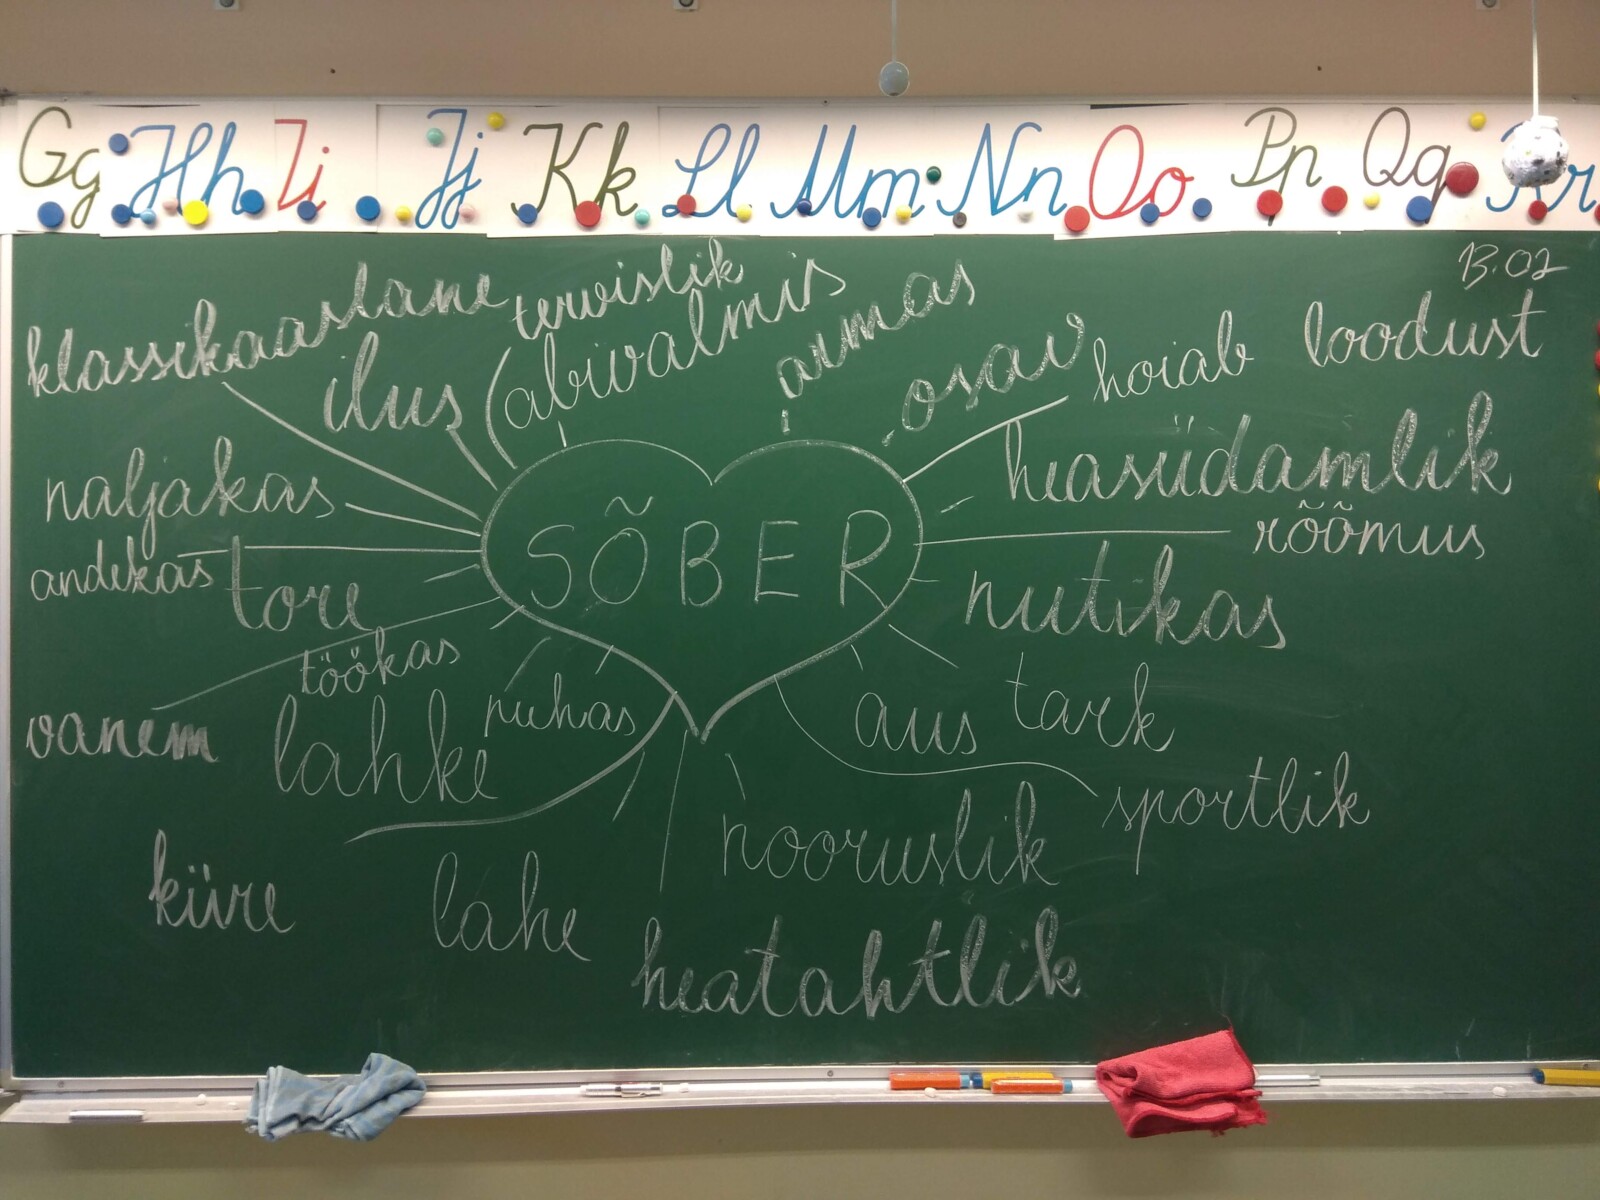 Gg Hh Ii Jj Kk Ll Mm Nn Oo Pp Qq Rr
13.02
klassikaaslane
tervislik
abivalmis
armas
ilus
osav
hoiab loodust
naljakas
heasüdamlik
SÕBER
rõõmus
andekas
tore
nutikas
töökas
vanem
lahke
puhas
aus
tark
sportlik
nooruslik
küre
lahe
heatahtlik